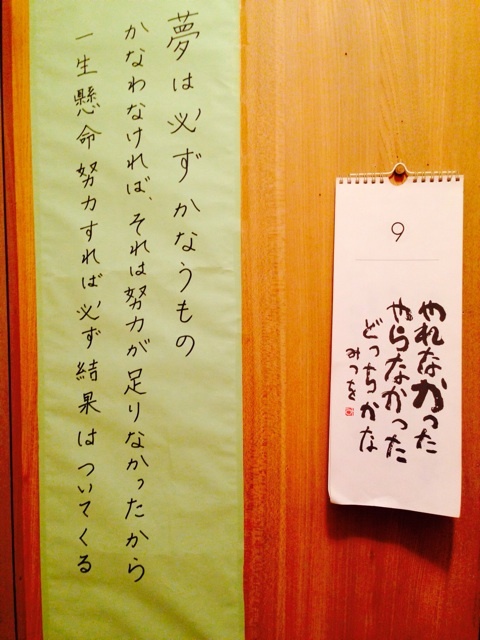 夢は必ずかなうもの
かなわなければ、それは努力が足りなかったから
一生懸命努力すれば必ず結果はついてくる
9
やれなかった
やらなかった
どっちかな
みつを